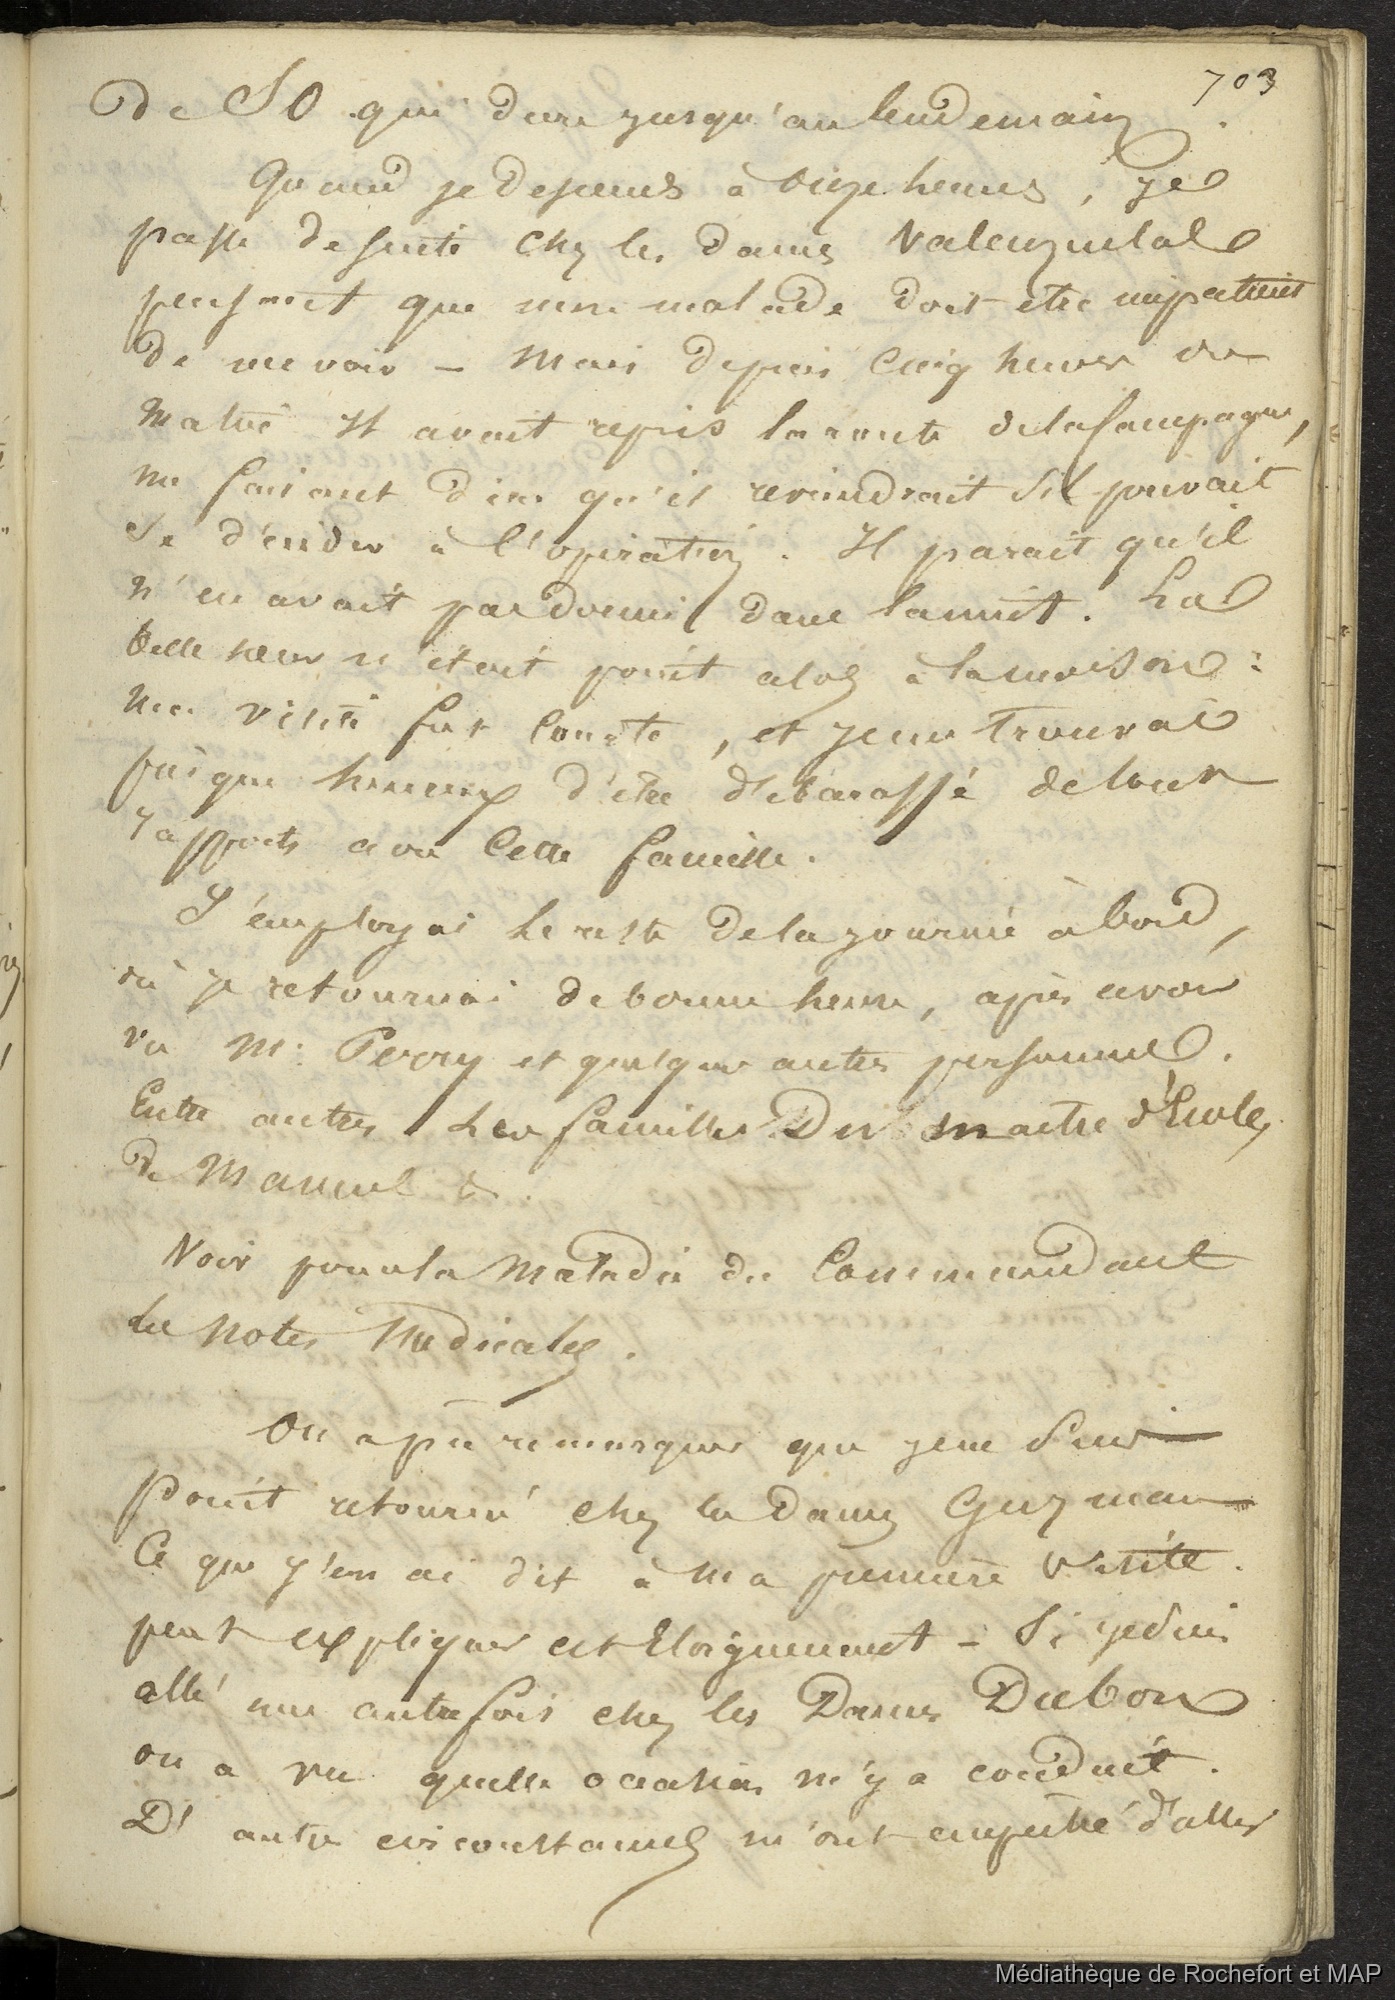 703
de SO qui dure jusqu'au lendemain.
Quand je descends à onze heures, je
passe de suite chez les dames Valenzuela
pensant que mon malade doit etre impatient
de me voir – Mais depuis cinq heures du
matin Il avait repris la route de la Campagne,
me faisant dire qu'il reviendrait s'il pouvait
se décider à l'opération. Il parait qu'il
n'en avait pas dormi dans la nuit. La
belle sœur n'était point alors à la maison :
ma visite fut courte, et je me trouvai
presque heureux d'être débarassé de tous
rapports avec cette famille.
J'employai le reste de la journée à bord,
où je retournai de bonne heure, après avoir
vu M. Perry et quelques autres personnes.
Entre autres Les familles du maitre d'Ecole,
de Manuel &.
Voir pour la Maladie du Commandant
les notes Médicales.
On a pu remarquer que je ne suis
point retourné chez les dames Guzman
Ce que j'en ai dit à ma première visite
peut expliquer cet Eloignement – Si je suis
allé une autre fois chez les Dames Dubon
on a vu quelle occasion m'y a conduit.
D'autres circonstances m'ont empêché d'aller
Médiathèque de Rochefort et MAP